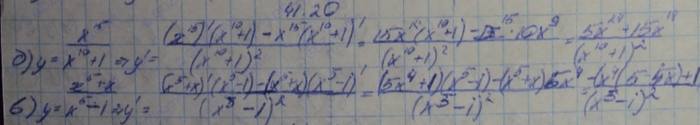 41.20
б) y = x^15/(x^10+1) ⇒ y' = ((x^15)'(x^10+1) - x^15(x^10+1)')/(x^10+1)^2 = (15x^14(x^10+1) - x^15·10x^9)/(x^10+1)^2 = (5x^24+15x^14)/(x^10+1)^2
в) y = (x^5+x)/(x^5-1) ⇒ y' = ((x^5+x)'(x^5-1)-(x^5+x)(x^5-1)')/(x^5-1)^2 = ((5x^4+1)(x^5-1)-(x^5+x)5x^4)/(x^5-1)^2